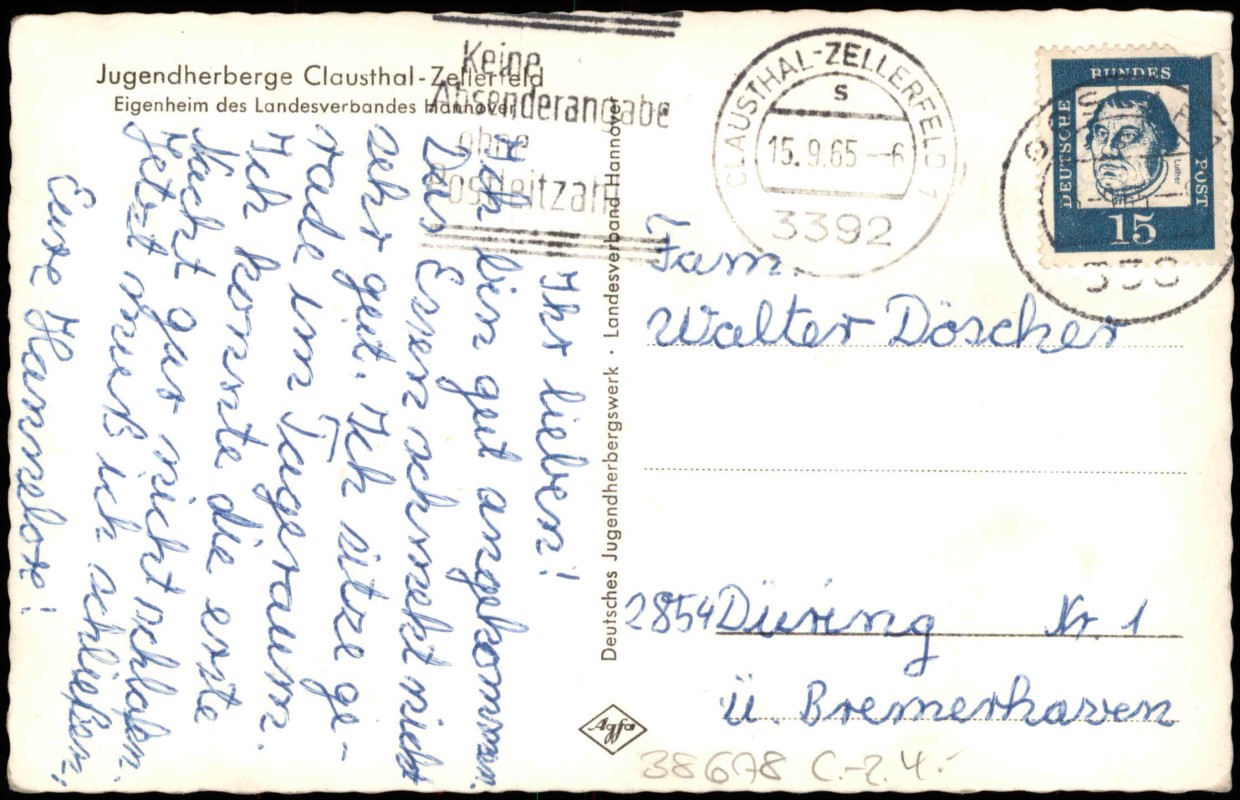 Jugendherberge Clausthal-Zellerfeld
Eigenheim des Landesverbandes Hannover
Keine
Absenderangabe
ohne
Postleitzahl
CLAUSTHAL-ZELLERFELD 1
s
15.9.65-6
3392
DEUTSCHE BUNDESPOST
Luther
15
338
Ihr lieben!
Ich bin gut angekommen.
Das Essen schmekt nicht
sehr gut. Ich sitze ge-
rade im Tagesraum.
Ich konnte die erste
Nacht gar nicht schlafen.
Jetzt muß ich schließen,
Eure Hannelore!
Deutsches Jugendherbergswerk · Landesverband Hannover
Fam.
Walter Döscher
2854 Düring Nr. 1
ü. Bremerhaven
Agfa
38678 C.-2.4.-